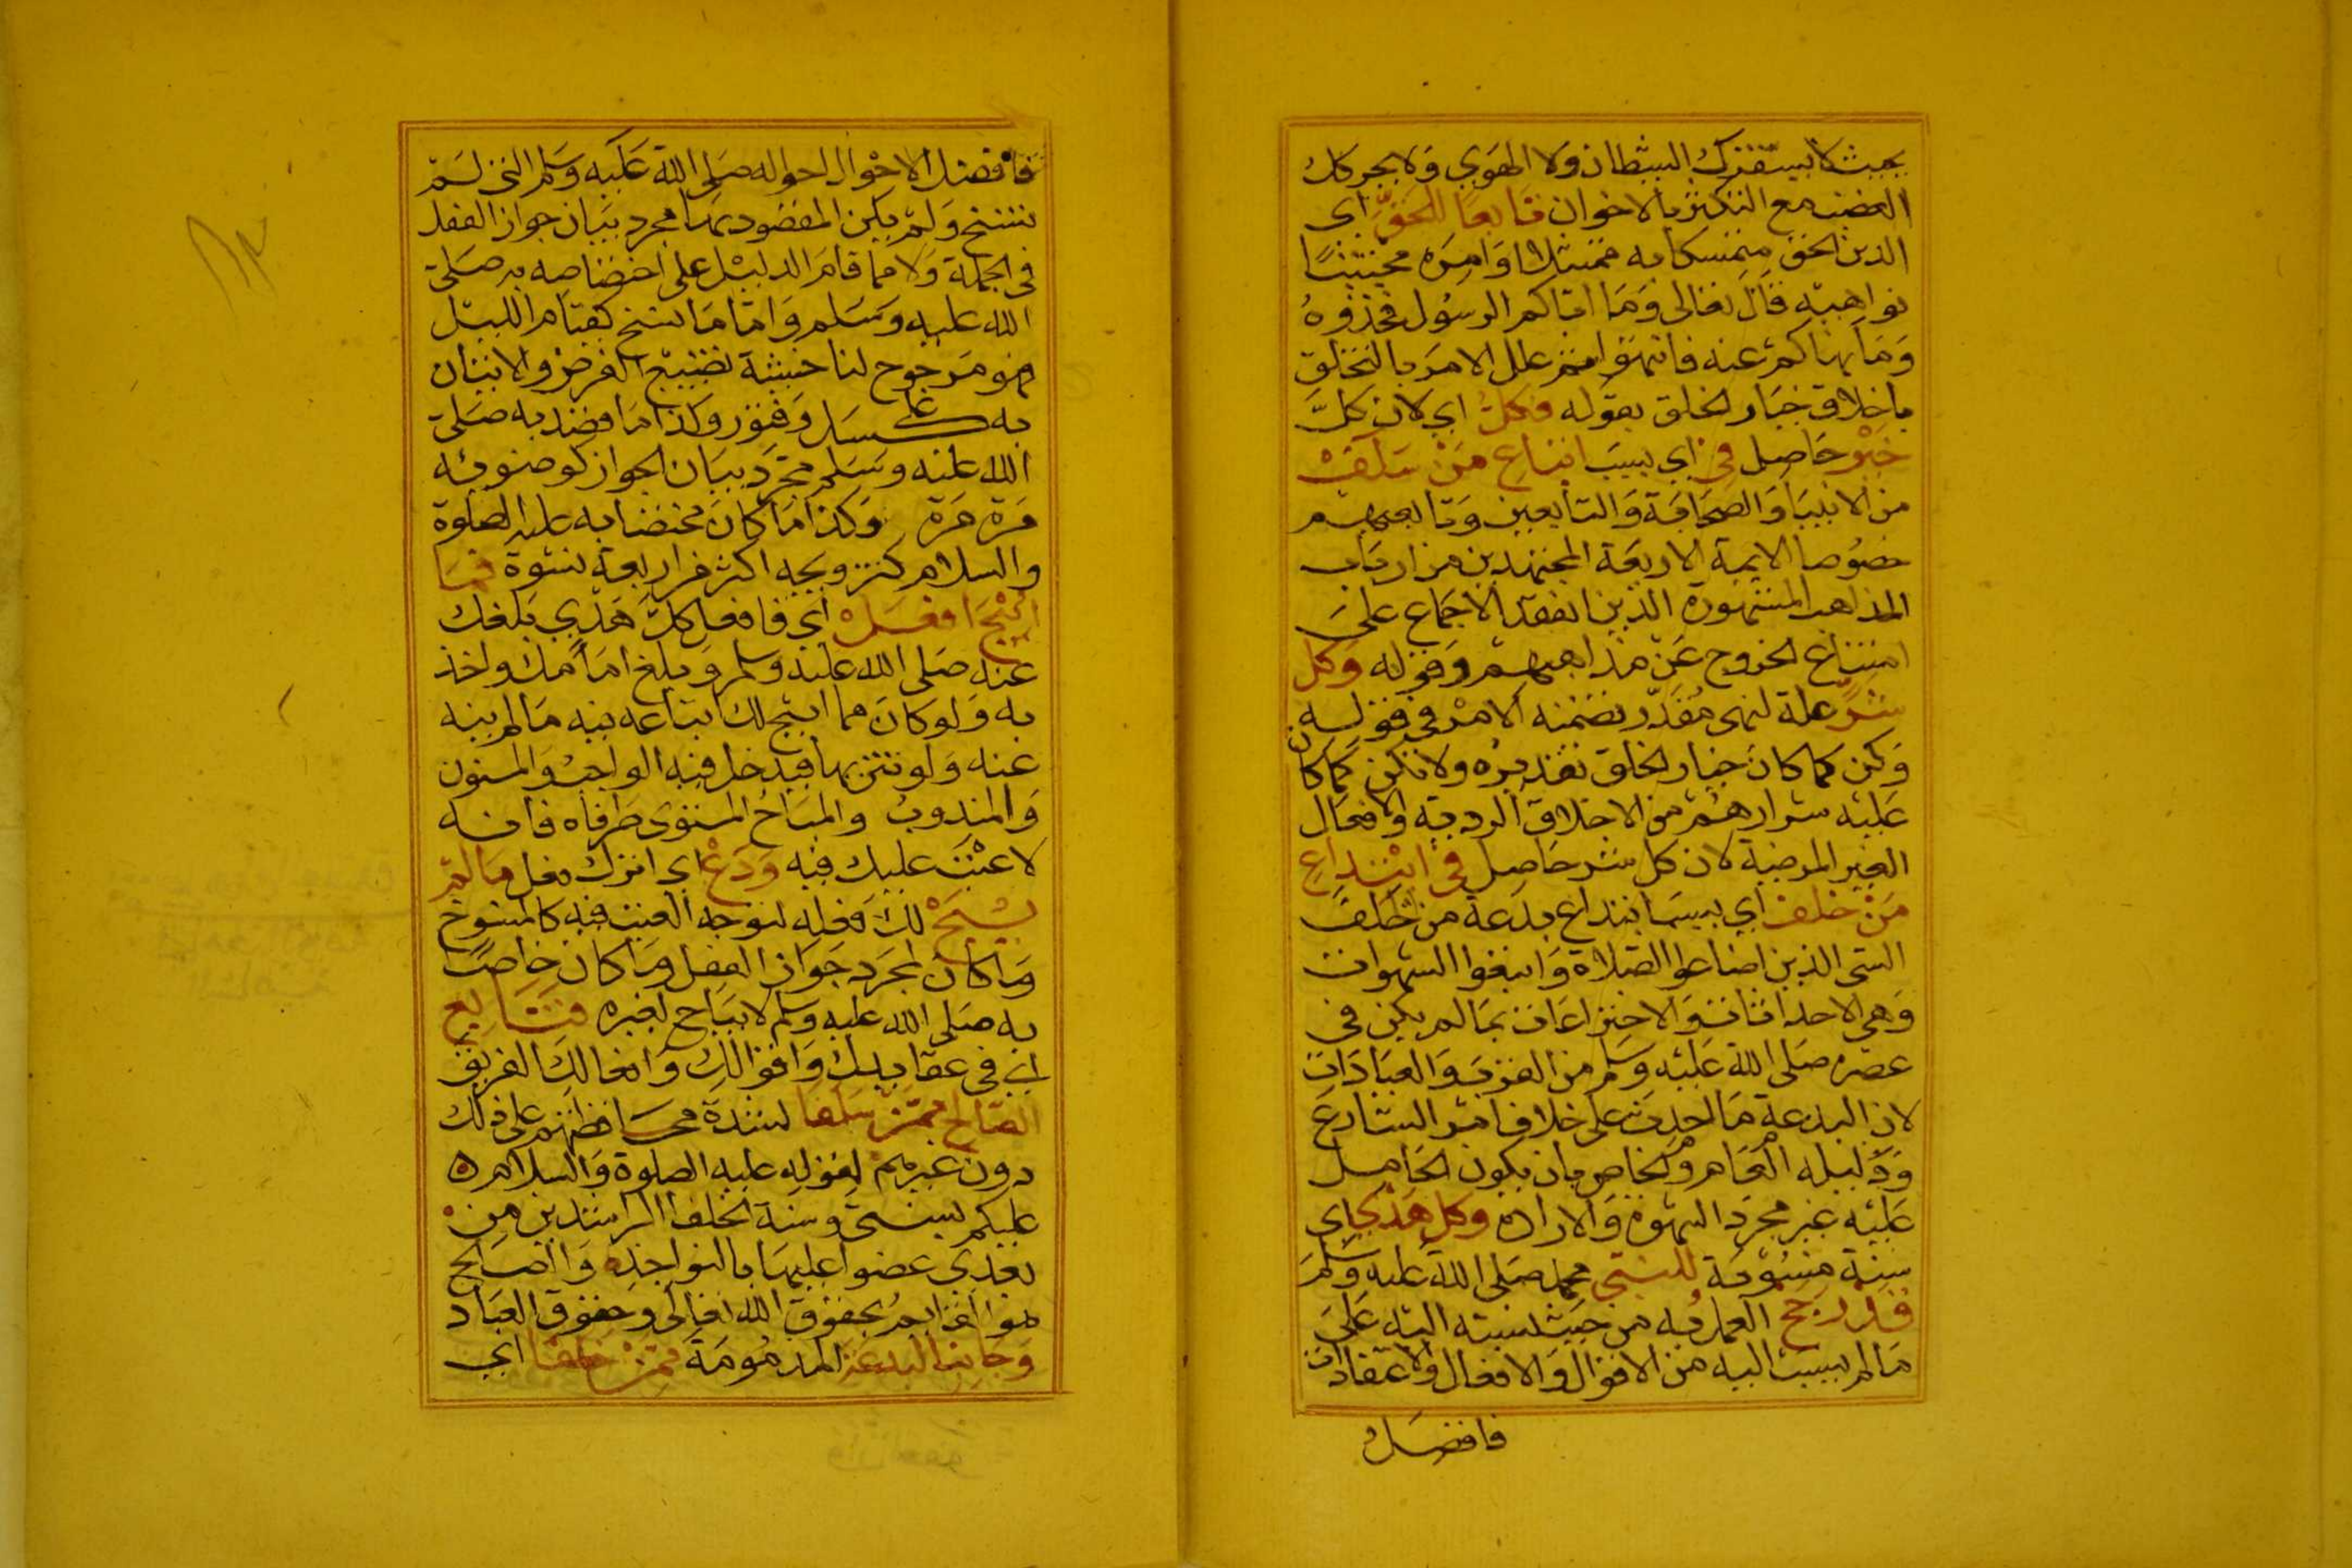 بحيث لا يستفزك الشيطان ولا الهوى ولا يحركك
الغضب مع التكثر بالاخوان تابعا للحق اى
الدين الحق متمسكا به ممتثلا اوامره مجتنبا
نواهيه قال تعالى وما اتاكم الرسول فخذوه
وما نهاكم عنه فانتهوا ثم علل الامر بالتخلق
باخلاق خيار الخلق بقوله فكل اي لان كل
خير حاصل في اي بسبب اتباع من سلف
من الانبيا والصحابة والتابعين وتابعيهم
خصوصا الايمة الاربعة المجتهدين من ارباب
المذاهب المشهورة الذين انعقد الاجماع على
امتناع الخروج عن مذاهبهم وقوله وكل
شر علة لنهى مقدر تضمنه الامر فى قوله
وكن كما كان خيار الخلق تقديره ولا تكن كما كان
عليه شرارهم من الاخلاق الردية والافعال
الغير المرضية لان كل شر حاصل في ابتداع
من خلف اي بسبب ابتداع بدعة من خلف
السئ الذين اضاعوا الصلاة واتبعوا الشهوات
وهي الاحداثات والاختراعات بما لم يكن فى
عصره صلى الله عليه وسلم من القرب والعبادات
لان البدعة ما احدث على خلاف امر الشارع
ودليله العام والخاص بان يكون الحامل
عليه غير مجرد الشهوة والارادة وكل هدي اي
سنة منسوبة للنبي محمد صلى الله عليه وسلم
قد رجح العمل به من حيث نسبته اليه على
ما لم ينسب اليه من الاقوال والافعال والاعتقادات
فافضل
فافضل الاحوال احواله صلى الله عليه وسلم التى لم
تنسخ ولم يكن المقصود بها مجرد بيان جواز الفعل
فى الجملة ولا مما قام الدليل على اختصاصه به صلى
الله عليه وسلم واما ما نسخ كقيام الليل
فهو مرجوح لنا خشية تضييع الفرض والاتيان
به على كسل وفتور وكذا ما قصد به صلى
الله عليه وسلم مجرد بيان الجواز كوضوئه
مرة مرة وكذا ما كان مختصا به عليه الصلوة
والسلام كتزويجه اكثر من اربعة نسوة فما
ابيح افعل اي فافعل كل هدي بلغك
عنه صلى الله عليه وسلم وبلغ امامك واخذ
به ولو كان مما ابيح لك اتباعه فيه ما لم ينه
عنه ولو تنزيها فيدخل فيه الواجب والمسنون
والمندوب والمباح المستوى طرفاه فانه
لا عتب عليك فيه ودع اي اترك فعل ما لم
يبح لك فعله لتوجه العتب فيه كالمنسوخ
وما كان لمجرد جواز الفعل وما كان خاصا
به صلى الله عليه وسلم لا يباح لغيره فتابع
اي في عقايدك واقوالك وافعالك الفريق
الصالح ممن سلفا لشدة محافظتهم على ذلك
دون غيرهم لقوله عليه الصلوة والسلام
عليكم بسنتي وسنة الخلفا الراشدين من
بعدي عضوا عليها بالنواجذ والصالح
هو القايم بحقوق الله تعالى وحقوق العباد
وجانب البدعة المذمومة ممن خلفا اي